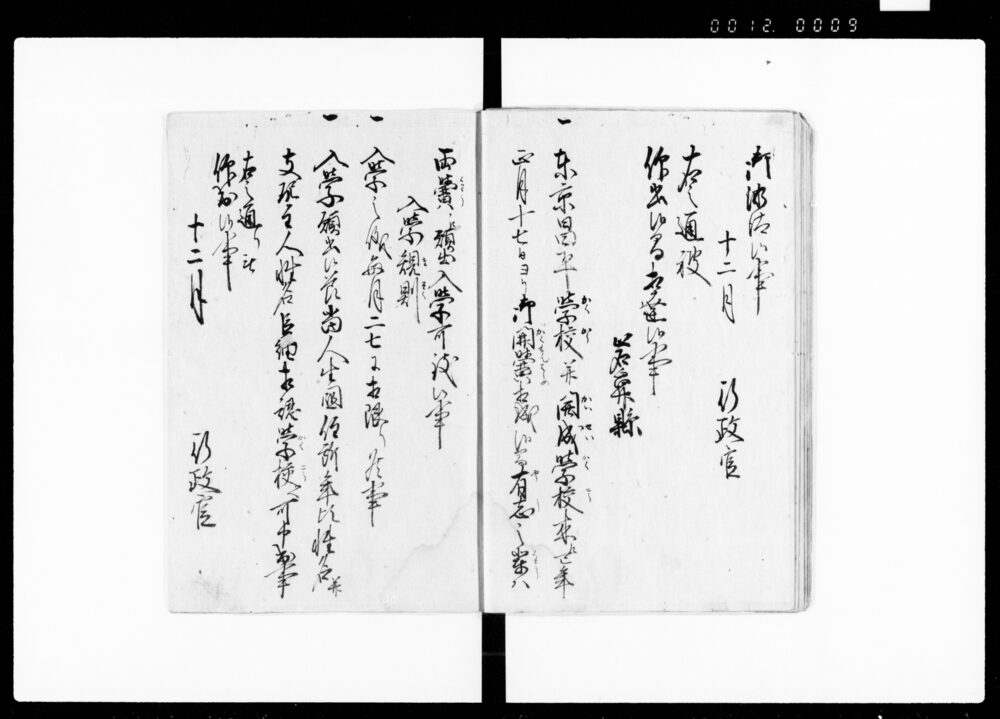 0012. 0009
御沙汰候事
十二月 行政官
右之通被
仰出候間相達候事
岩鼻縣
一 東京昌平学校并開成学校来巳年
正月十七日ヨリ御開黌相成候間有志之輩ハ
両黌江願出入学可致候事
入学規則
一 入学之儀毎月二七に相限り候事
一 入学願出候節当人生国住所年比姓名并
支配主人姓名巨細相認学校江可申出事
右之通り被
仰出候事
十二月
行政官